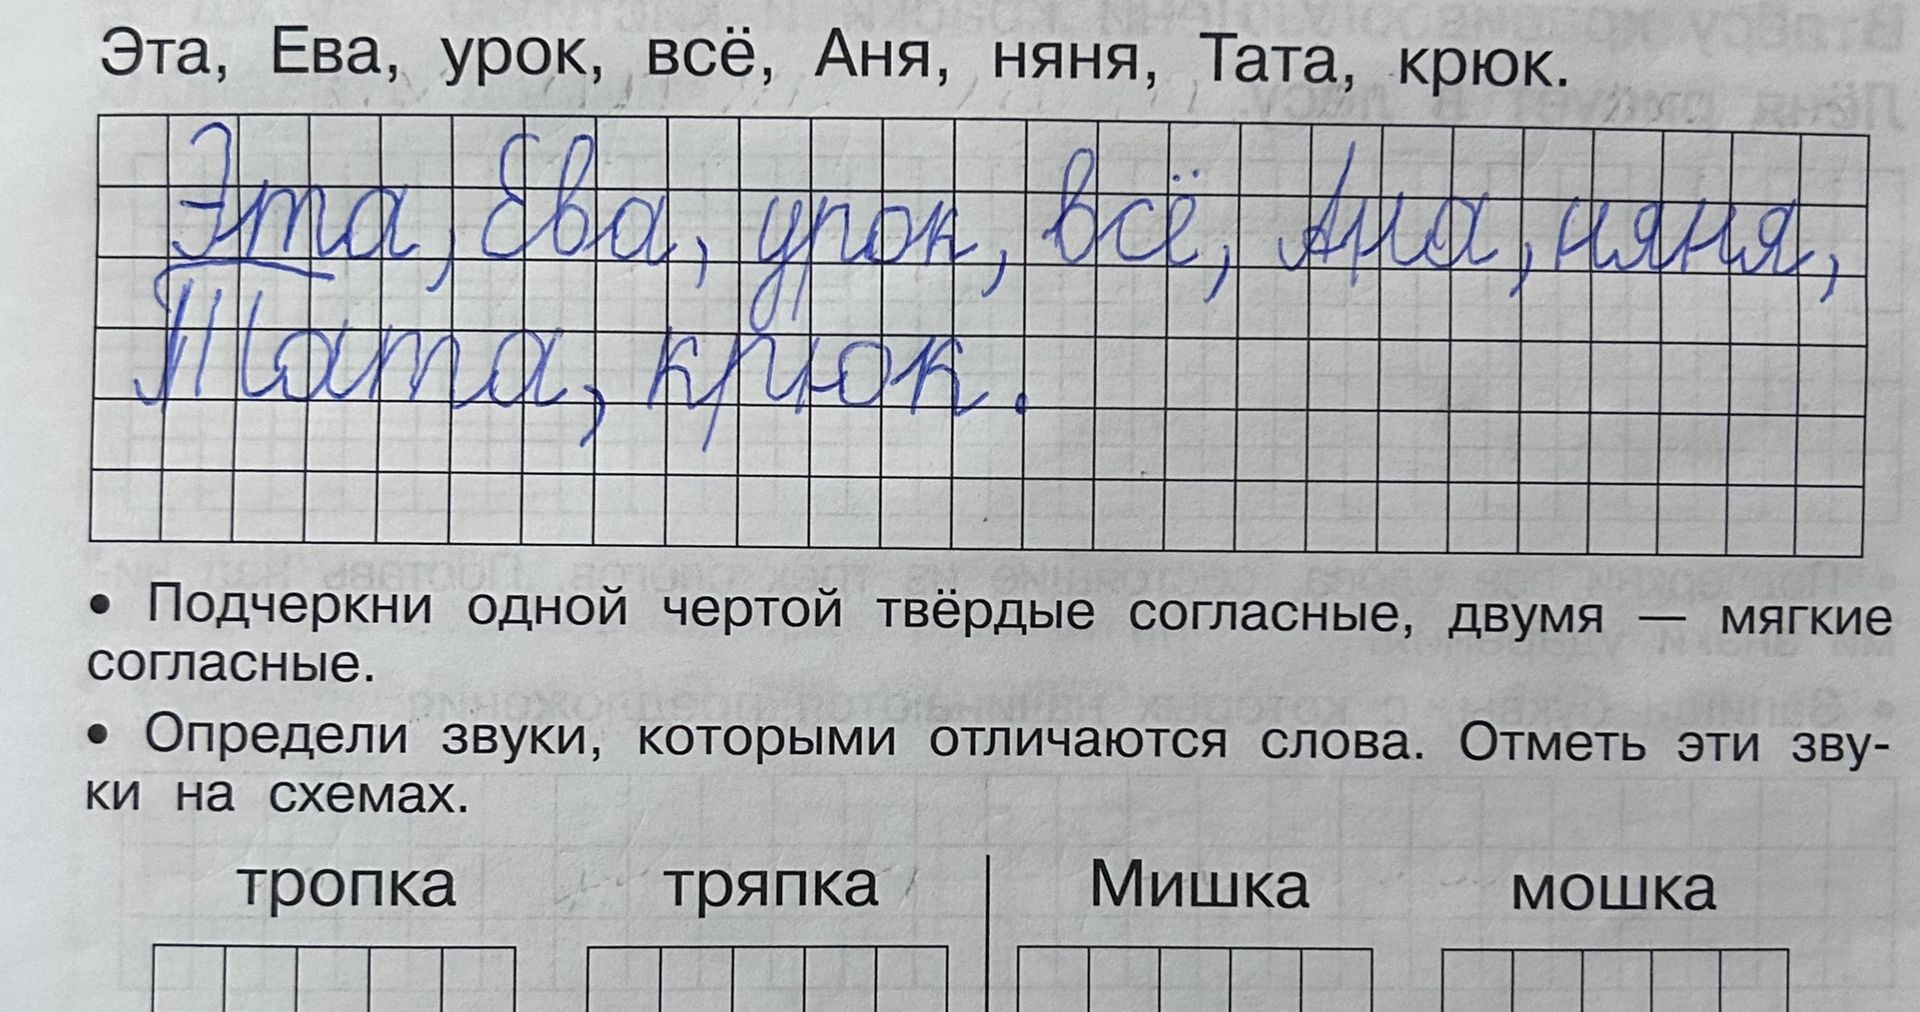 Эта, Ева, урок, всё, Аня, няня, Тата, крюк.
Эта, Ева, урок, всё, Ана, няня,
Тата, крюк.
• Подчеркни одной чертой твёрдые согласные, двумя — мягкие
согласные.
• Определи звуки, которыми отличаются слова. Отметь эти зву-
ки на схемах.
тропка тряпка Мишка мошка